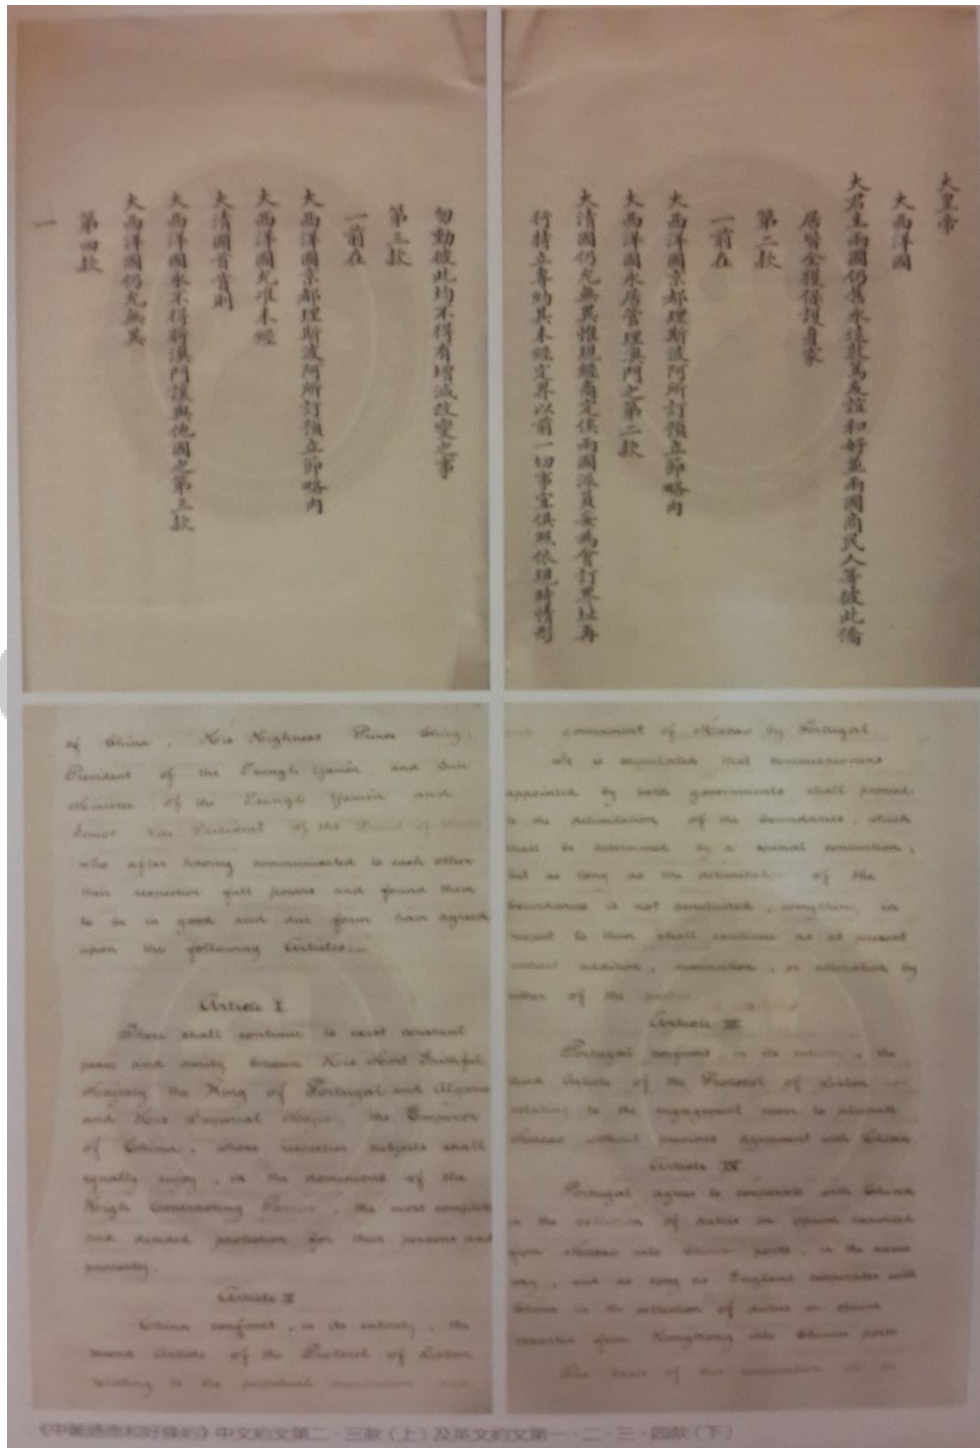 大皇帝
大西洋國
大君主兩國仍舊永遠敦篤友誼和好並兩國商民人等彼此僑
居皆全獲保護身家
第二款
一前在
大西洋國京都理斯波阿所訂預立節略內
大西洋國永居管理澳門之第二款
大清國仍允無異惟現經商定俟兩國派員妥為會訂界址再
行特立專約其未經定界以前一切事宜俱照依現時情形
勿動彼此均不得有增減改變之事
第三款
一前在
大西洋國京都理斯波阿所訂預立節略內
大西洋國允准未經
大清國首肯則
大西洋國永不得將澳門讓與他國之第三款
大西洋國仍允無異
第四款
一
of China, His Highness Prince Ching,
President of the Tsungli Yamên, and Sun
Minister of the Tsungli Yamên and
Senior Vice President of the Board of
who after having communicated to each other
their respective full powers and found them
to be in good and due form have agreed
upon the following Articles:—
Article I
There shall continue to exist constant
peace and amity between His Most Faithful
Majesty the King of Portugal and Algarves
and His Imperial Majesty the Emperor
of China, whose respective subjects shall
equally enjoy, in the dominions of the
High Contracting Parties, the most complete
and decided protection for their persons and
property.
Article II
China confirms, in its entirety, the
second Article of the Protocol of Lisbon
relating to the perpetual occupation and
government of Macao by Portugal
It is stipulated that commissioners
appointed by both governments shall proceed
to the delimitation of the boundaries, which
shall be determined by a special convention,
but so long as the delimitation of the
boundaries is not concluded, everything in
respect to them shall continue as at present
without addition, diminution, or alteration by
either of the parties
Article III
Portugal confirms, in its entirety, the
third Article of the Protocol of Lisbon
relating to the engagement never to alienate
Macao without previous agreement with China.
Article IV
Portugal agrees to cooperate with China
in the collection of duties on opium exported
from Macao into Chinese ports, in the same
way, and as long as England cooperates with
China in the collection of duties on opium
exported from Hongkong into Chinese ports
The basis of this cooperation will be
《中葡通商和好條約》中文約文第二、三款(上)及英文約文第一、二、三、四款(下)